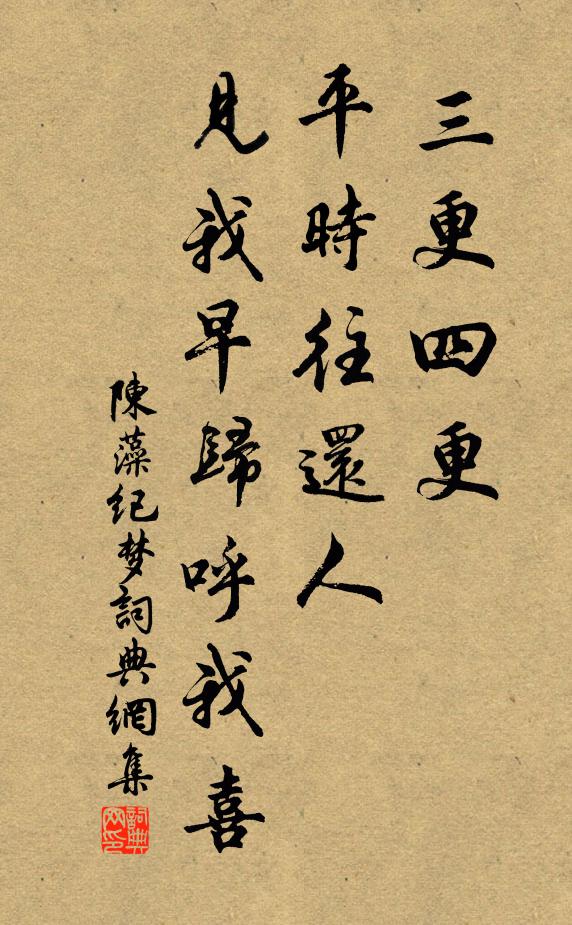 三更四更
平時往還人
見我早歸呼我喜
陳藻纪梦詞典網集
詞典网印